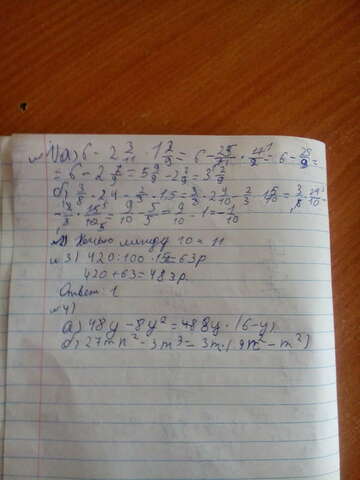 №1) а) 6 - 2 3/11 · 1 2/9 = 6 - 25/11 · 11/9 = 6 - 25/9 =
= 6 - 2 7/9 = 5 9/9 - 2 7/9 = 3 2/9
б) 3/8 · 2,4 - 2/3 · 1,5 = 3/8 · 2 4/10 - 2/3 · 15/10 = 3/8 · 24/10 -
- 2/3 · 15/10 = 9/10 - 5/5 = 9/10 - 1 = - 1/10
между 10 и 11
№3) 420 : 100 · 15 = 63р
420 + 63 = 483р.
Ответ: 1
№4)
а) 48y - 8y² = 488y · (6 - y)
б) 27mn² - 3m³ = 3m · (9n² - m²)